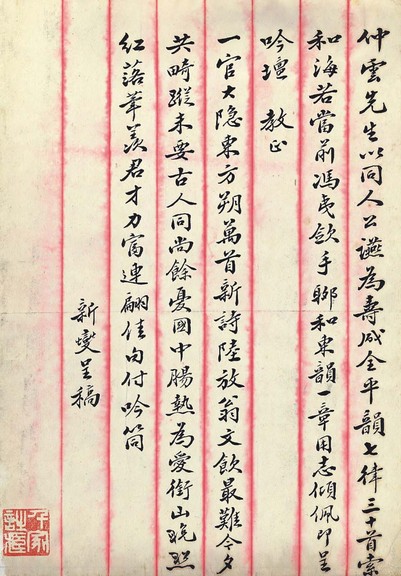 仲雲先生以同人公讌為壽成全平韻七律三十首索
和海若當前馮夷斂手聊和東韻一章用志傾佩即呈
吟壇 教正
一官大隐東方朔萬首新詩陸放翁文飲最難今夕
共畸蹤未要古人同尚餘憂國中腸熱為愛銜山晚照
紅落筆羨君才力富連翩佳句付吟筒
新燮呈稿